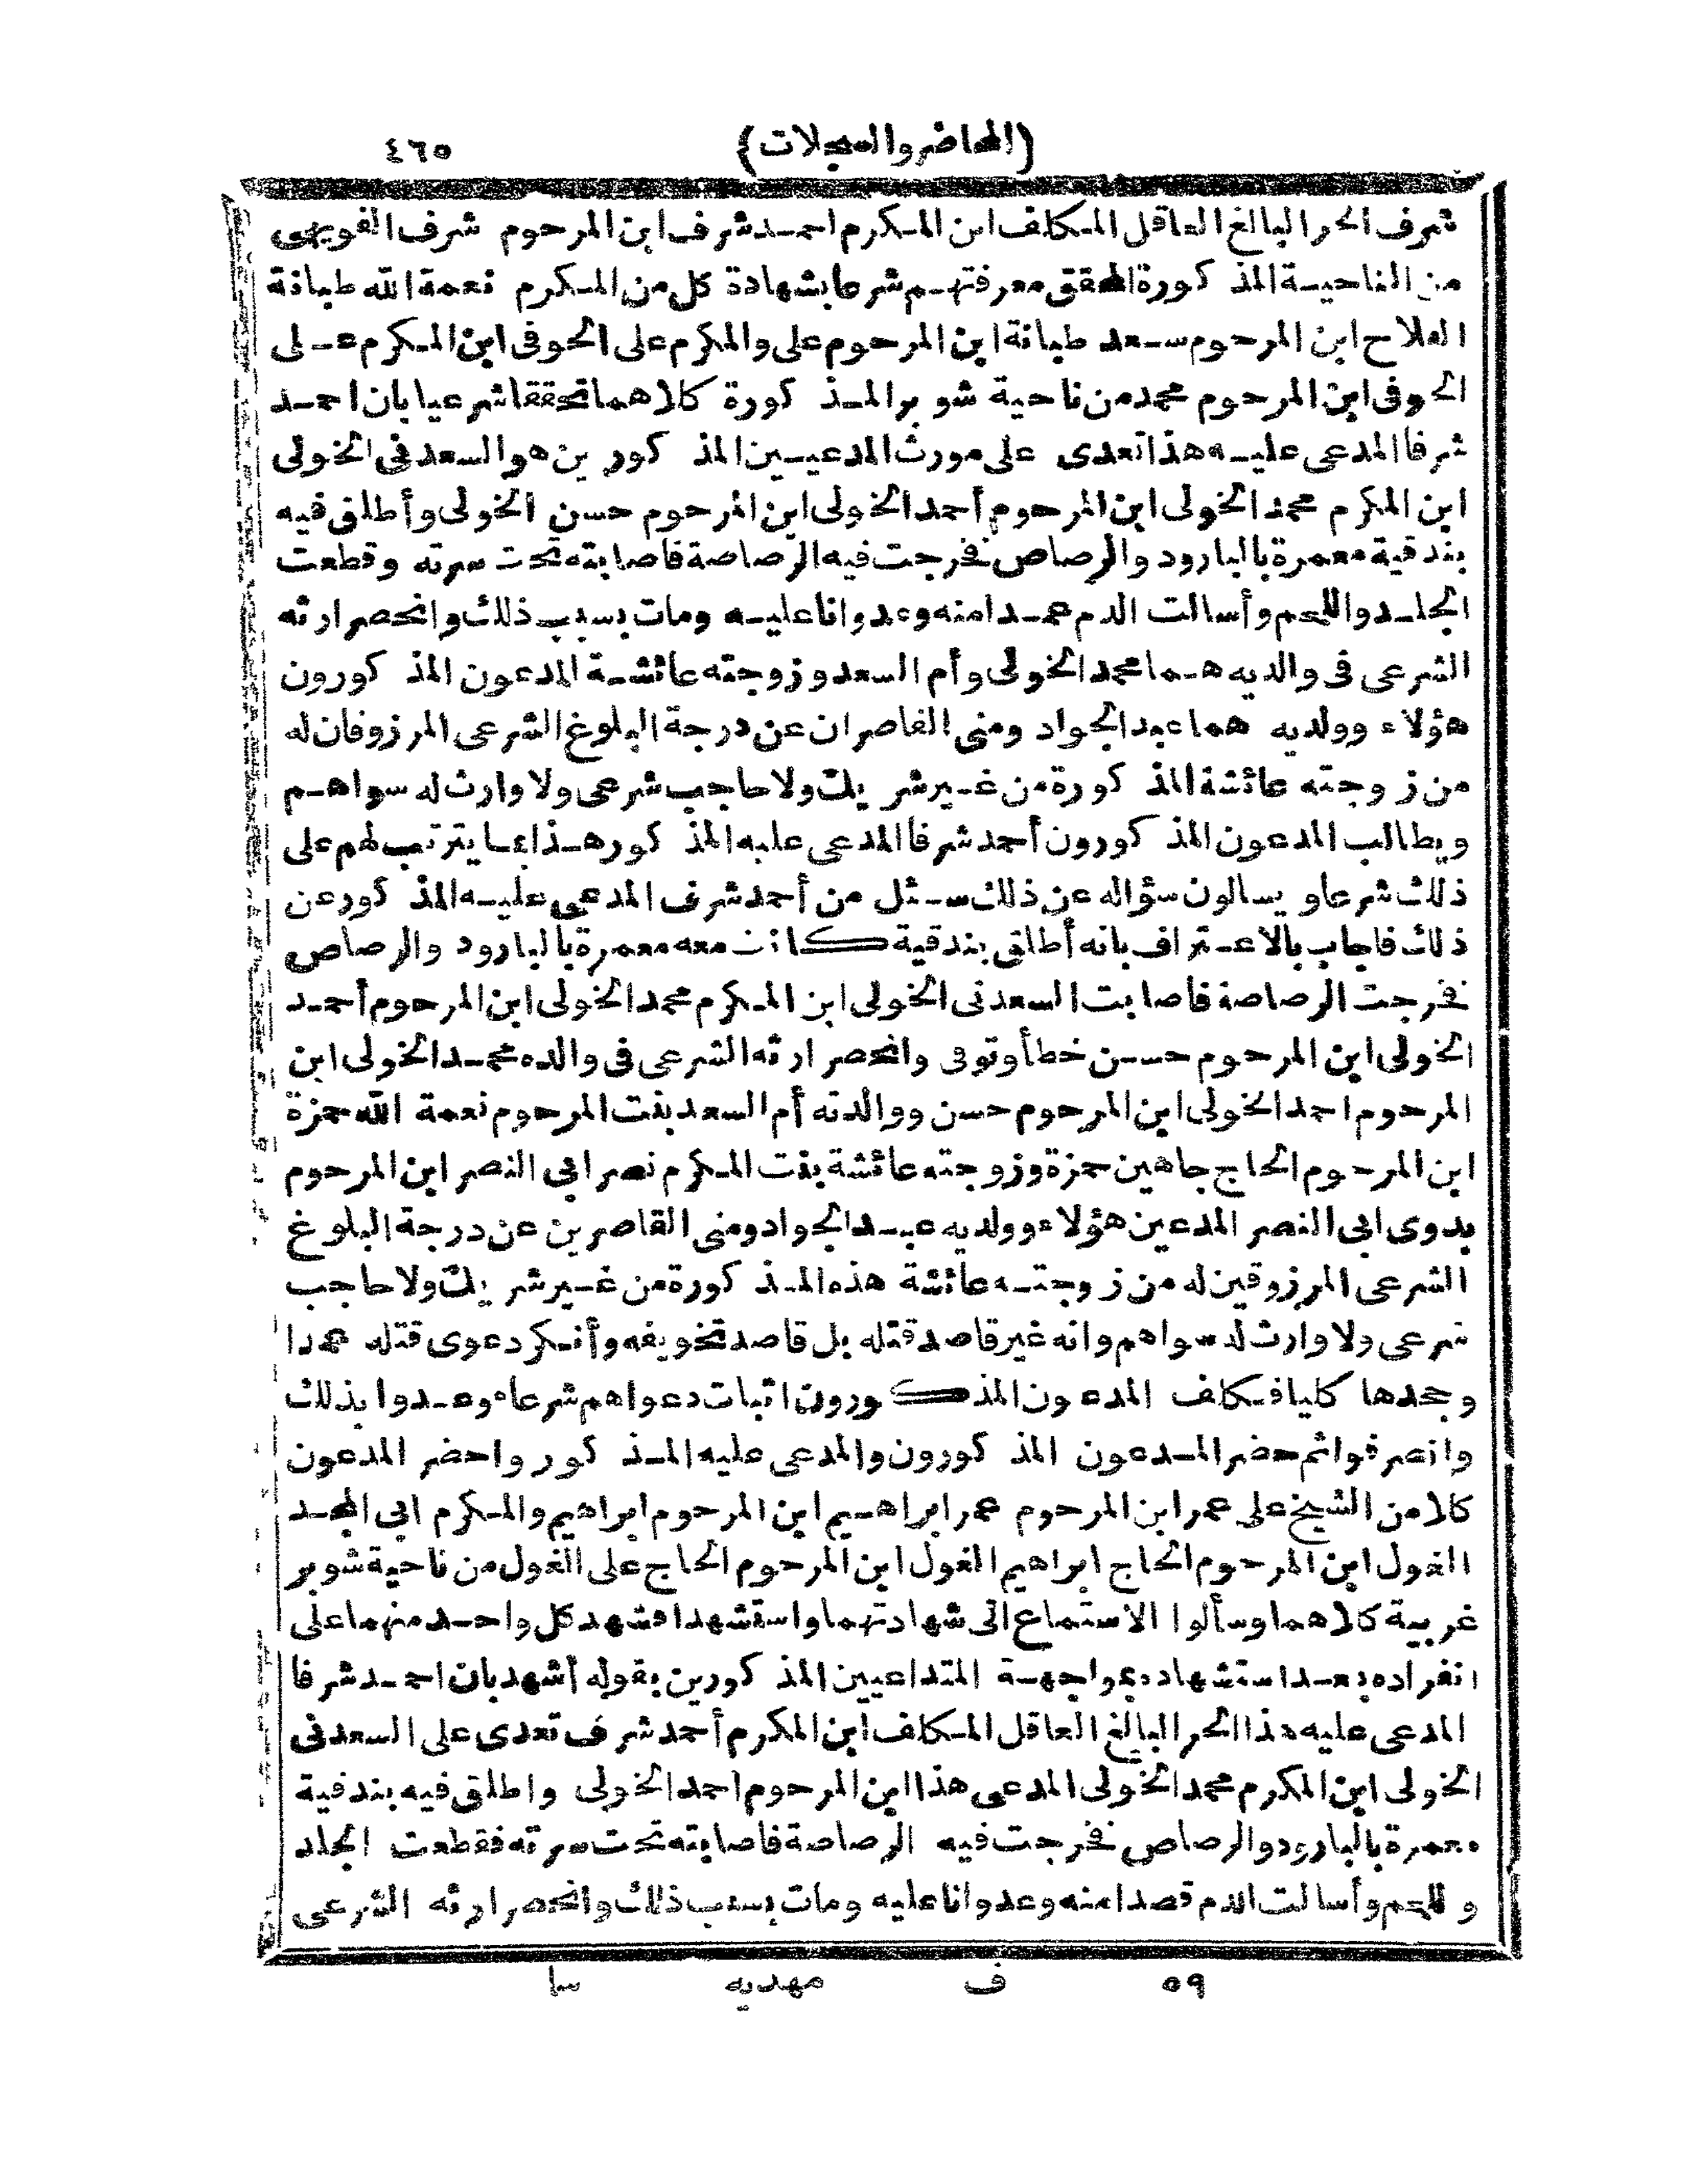 (المحاضر والسجلات) ٤٦٥
شرف الحر البالغ العاقل المكلف ابن المكرم احمد شرف ابن المرحوم شرف
من الناحية المذكورة المحقق معرفتهم شرعا بشهادة كل من المكرم نعمة الله طبانة
الفلاح ابن المرحوم سعد طبانة ابن المرحوم على والمكرم على الحوفى ابن المكرم على
الحوفى ابن المرحوم محمد من ناحية شوبر المذكورة كلاهما تحققا شرعيا بان احمد
شرفا المدعى عليه هذا تعدى على مورث المدعيين المذكورين هو السعدنى الخولى
ابن المكرم محمد الخولى ابن المرحوم أحمد الخولى ابن المرحوم حسن الخولى وأطلق فيه
بندقية معمرة بالبارود والرصاص فخرجت فيه الرصاصة فاصابته تحت سرته وقطعت
الجلد واللحم وأسالت الدم عمدا منه وعدوانا عليه ومات بسبب ذلك وانحصر ارثه
الشرعى فى والديه هما محمد الخولى وأم السعد وزوجته عائشة المدعون المذكورون
هؤلاء وولديه هما عبد الجواد ومنى القاصران عن درجة البلوغ الشرعى المرزوقان له
من زوجته عائشة المذكورة من غير شريك ولا حاجب شرعى ولا وارث له سواهم
ويطالب المدعون المذكورون أحمد شرفا المدعى عليه المذكور هذا بما يترتب لهم على
ذلك شرعا ويسالون سؤاله عن ذلك سئل من أحمد شرف المدعى عليه المذكور عن
ذلك فاجاب بالاعتراف بانه أطلق بندقية كانت معه معمرة بالبارود والرصاص
فخرجت الرصاصة فاصابت السعدنى الخولى ابن المكرم محمد الخولى ابن المرحوم أحمد
الخولى ابن المرحوم حسن خطأ وتوفى وانحصر ارثه الشرعى فى والده محمد الخولى ابن
المرحوم احمد الخولى ابن المرحوم حسن ووالدته أم السعد بنت المرحوم نعمة الله حمزة
ابن المرحوم الحاج جاهين حمزة وزوجته عائشة بنت المكرم نصر ابى النصر ابن المرحوم
بدوى ابى النصر المدعين هؤلاء وولديه عبد الجواد ومنى القاصرين عن درجة البلوغ
الشرعى المرزوقين له من زوجته عائشة هذه المذكورة من غير شريك ولا حاجب
شرعى ولا وارث له سواهم وانه غير قاصد قتله بل قاصد تخويفه وأنكر دعوى قتله عمدا
وجحدها كليا فكلف المدعون المذكورون اثبات دعواهم شرعا ووعدوا بذلك
وانصرفوا ثم حضر المدعون المذكورون والمدعى عليه المذكور واحضر المدعون
كلا من الشيخ على عمر ابن المرحوم عمر ابراهيم ابن المرحوم ابراهيم والمكرم ابى المجد
الغول ابن المرحوم الحاج ابراهيم الغول ابن المرحوم الحاج على الغول من ناحية شوبر
غربية كلاهما وسألوا الاستماع الى شهادتهما واستشهدا فشهد كل واحد منهما على
انفراده بعد استشهاده بمواجهة المتداعيين المذكورين بقوله أشهد بان احمد شرفا
المدعى عليه هذا الحر البالغ العاقل المكلف ابن المكرم أحمد شرف تعدى على السعدنى
الخولى ابن المكرم محمد الخولى المدعى هذا ابن المرحوم احمد الخولى واطلق فيه بندقية
معمرة بالبارود والرصاص فخرجت فيه الرصاصة فاصابته تحت سرته فقطعت الجلد
واللحم وأسالت الدم قصدا منه وعدوانا عليه ومات بسبب ذلك وانحصر ارثه الشرعى
٥٩ ف مهديه سا